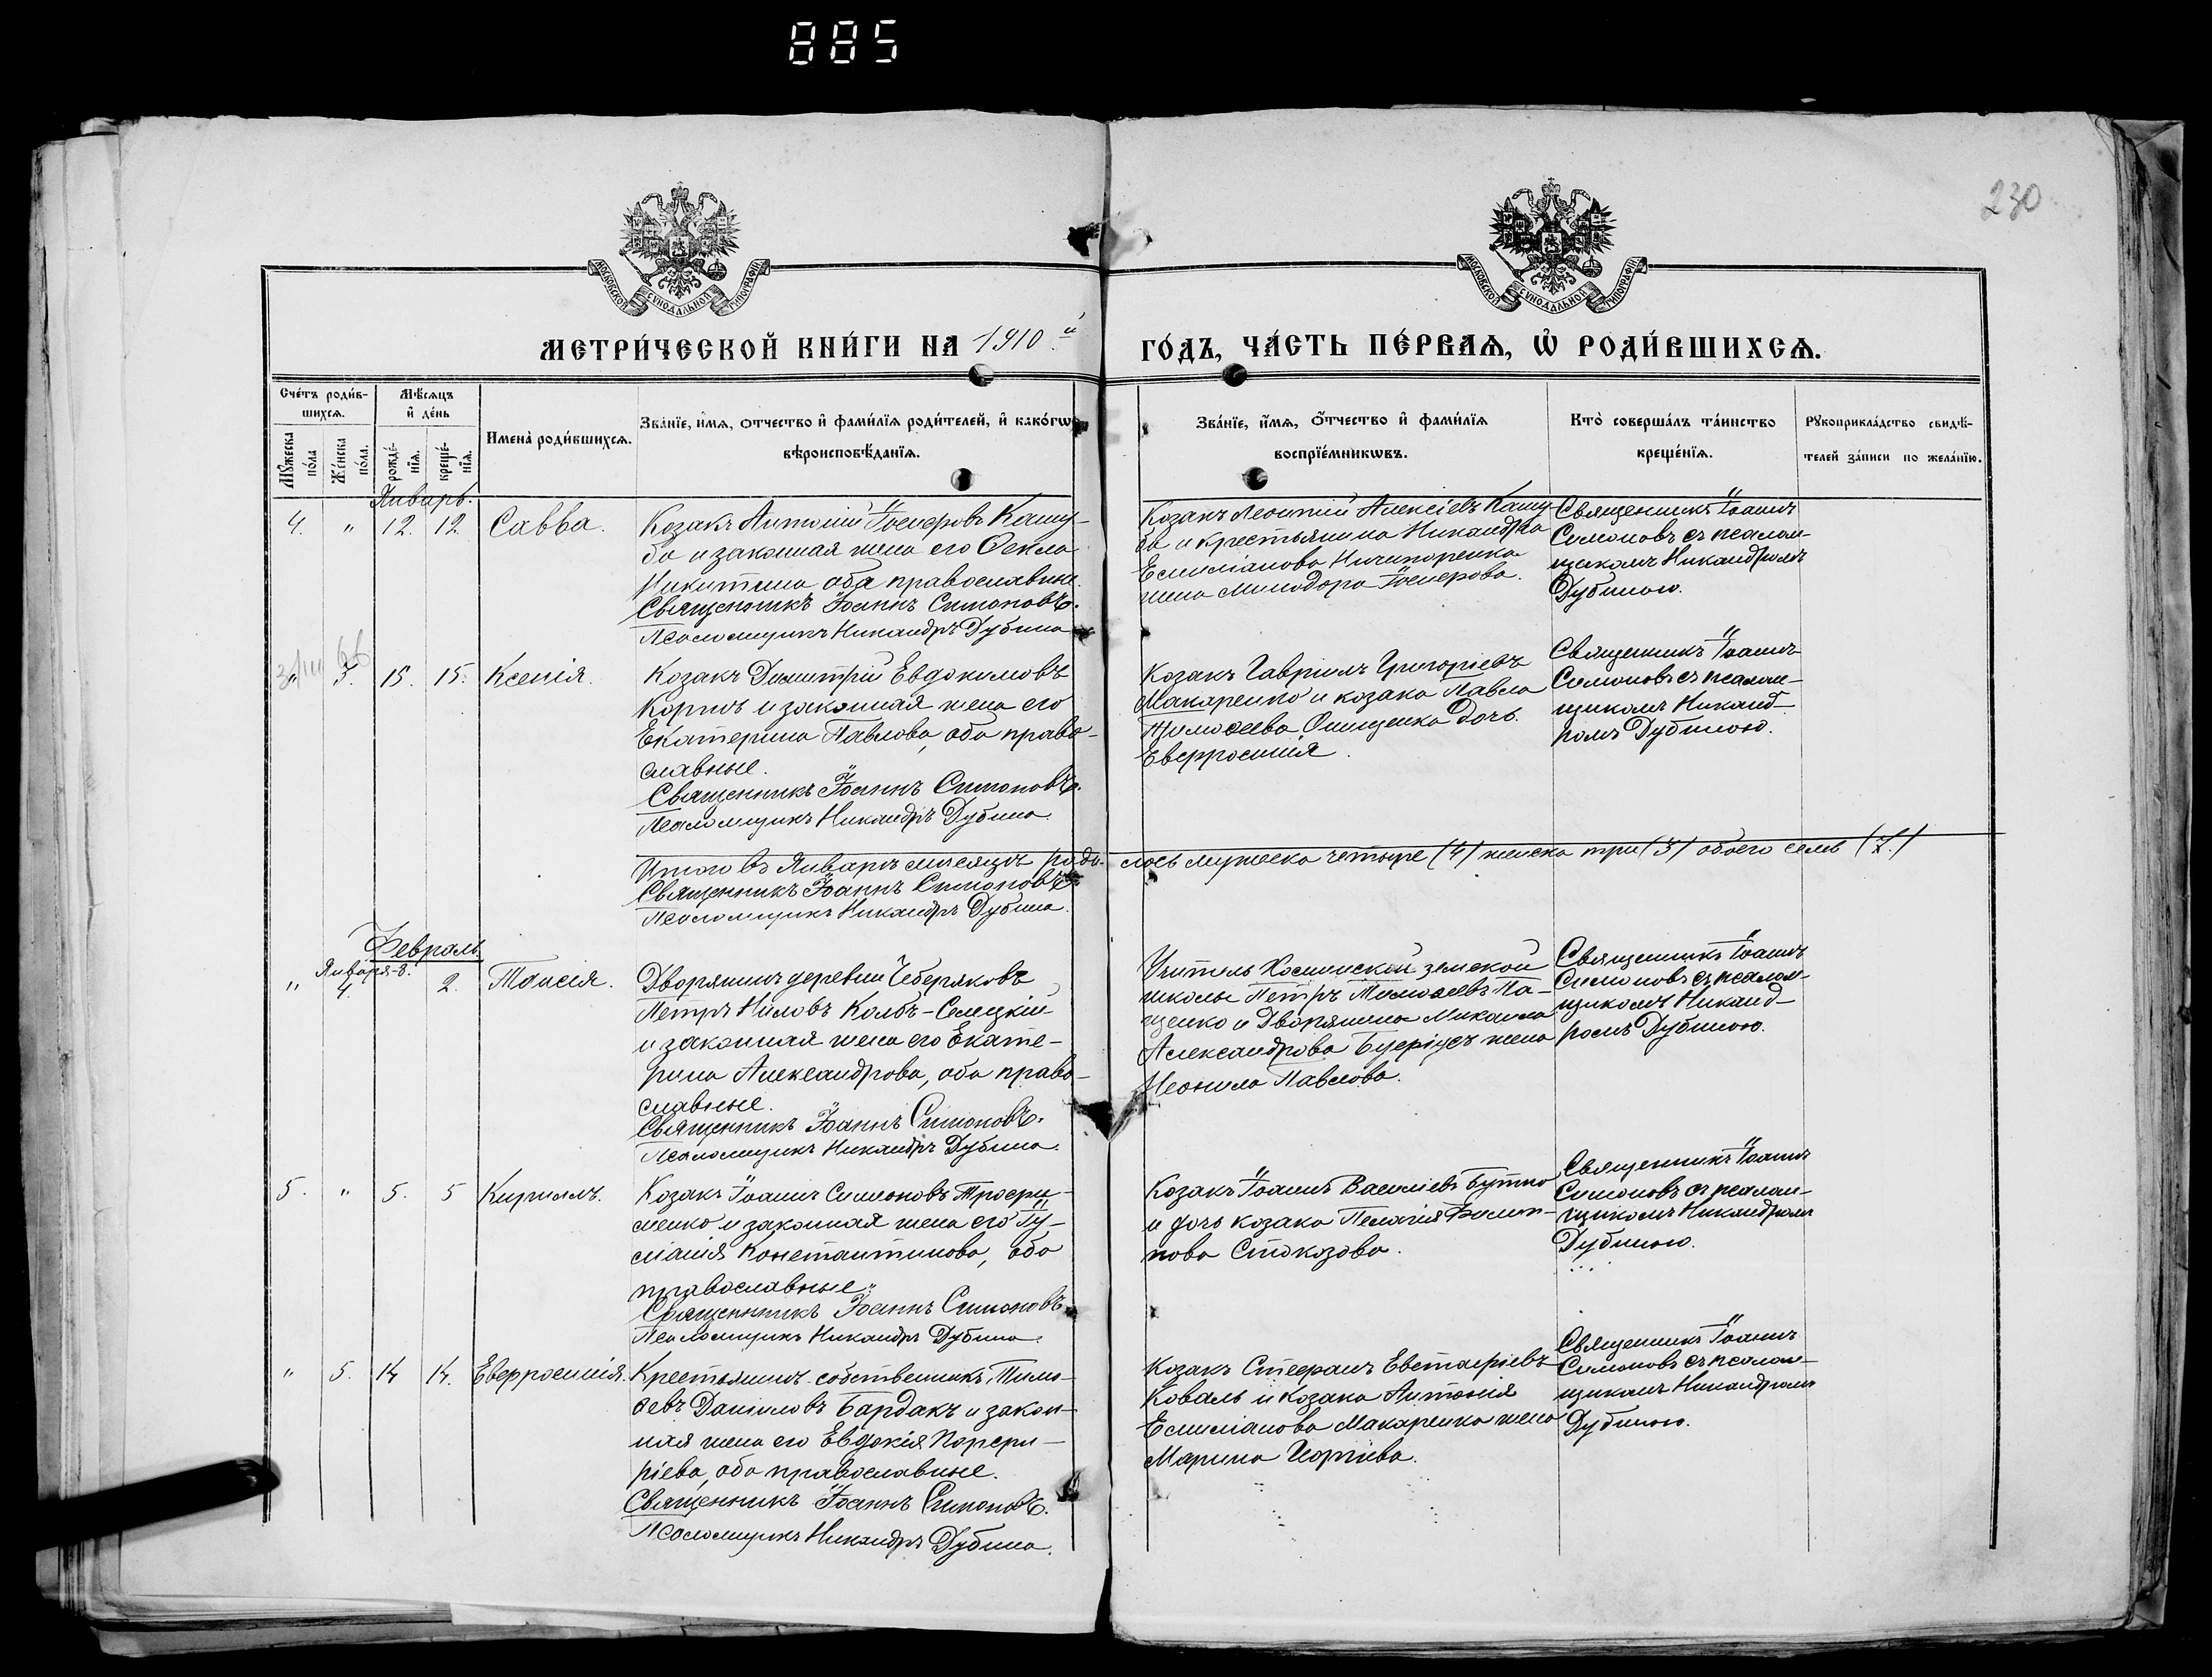 885
230
МОСКОВСКОЙ СѴНОДАЛЬНОЙ ТИПОГРАФІИ
МОСКОВСКОЙ СѴНОДАЛЬНОЙ ТИПОГРАФІИ
МЕТРИ́ЧЕСКОЙ КНИ́ГИ НА 1910й
ГО́ДЪ, ЧА́СТЬ ПЕ́РВАѦ, Ѡ҆ РОДИ́ВШИХСѦ.
Сче́тъ роди́в-
шихсѧ.
Мꙋ́жеска
по́ла
Же́нска
по́ла.
Мѣ́сѧцъ
и҆ де́нь
рожде́-
нїѧ.
креще́-
нїѧ.
Имена̀ роди́вшихсѧ.
Зва́нїе, и҆́мѧ, ѻтчество и҆ фами́лїѧ роди́телей, и҆ како́гѡ
вѣроисповѣ́данїѧ.
Зва́нїе, и҆́мѧ, ѻ҆́тчество и҆ фами́лїѧ
воспрїе́мникѡвъ.
Кто̀ соверша́лъ та́инство
креще́нїѧ.
Рꙋкоприкла́дство свидѣ́-
телей за́писи по жела́нїю.
Январь.
4. " 12. 12. Савва.
Козакъ Антоній Іосифовъ Кашу-
ба и законная жена его Ѳекла
Никитина оба православные.
Священникъ Іоаннъ Симоновъ.
Псаломщикъ Никандръ Дубина
Козакъ Леонтій Алексіевъ Кашу-
ба и крестьянина Никандра
Емиліанова Ничипоренка
жена Минодора Іосифова.
Священникъ Іоаннъ
Симоновъ съ псалом-
щикомъ Никандромъ
Дубиною.
3. 15. 15. Ксенія.
Козакъ Димитрій Евдокимовъ
Коржъ и законная жена его
Екатерина Павлова, оба право-
славные.
Священникъ Іоаннъ Симоновъ.
Псаломщикъ Никандръ Дубина.
Козакъ Гавріилъ Григоріевъ
Макаренко и козака Павла
Тимоѳеева Онищенка дочь
Евфросинія.
Священникъ Іоаннъ
Симоновъ съ псалом-
щикомъ Никанд-
ромъ Дубиною.
Итого въ Январѣ мѣсяцѣ роди- лось мужеска четыре (4) женска три (3) обоего семь (7.)
Священникъ Іоаннъ Симоновъ
Псаломщикъ Никандръ Дубина.
Февраль
Января-8.
" 4. 2. Таисія.
Дворянинъ деревни Чеберяковъ
Петръ Ниловъ Колбъ-Селецкій
и законная жена его Екате-
рина Александрова, оба право-
славные.
Священникъ Іоаннъ Симоновъ.
Псаломщикъ Никандръ Дубина.
Учитель земской
школы Петръ Тимоѳеевъ Па-
щенко и Дворянина Михаила
Александрова жена
Неонила Павлова.
Священникъ Іоаннъ
Симоновъ съ псалом-
щикомъ Никанд-
ромъ Дубиною.
5. " 5. 5 Кириллъ.
Козакъ Іоаннъ Симоновъ Трофи-
менко и законная жена его Іу-
ліанія Константинова, оба
православные.
Священникъ Іоаннъ Симоновъ.
Псаломщикъ Никандръ Дубина.
Козакъ Іоаннъ Василіевъ Бутко
и дочь козака Пелагія Филип-
пова Стокозова.
Священникъ Іоаннъ
Симоновъ съ псалом-
щикомъ Никандромъ
Дубиною.
" 5. 14 14. Евфросинія.
Крестьянинъ собственникъ Тимо-
ѳевъ Даніиловъ Бардакъ и закон-
ная жена его Евдокія Порфи-
ріева, оба православные.
Священникъ Іоаннъ Симоновъ.
Псаломщикъ Никандръ Дубина.
Козакъ Стефанъ Евстафіевъ
Коваль и козака Антонія
Емиліанова Макаренка жена
Марина Георгіева.
Священникъ Іоаннъ
Симоновъ съ псалом-
щикомъ Никандромъ
Дубиною.